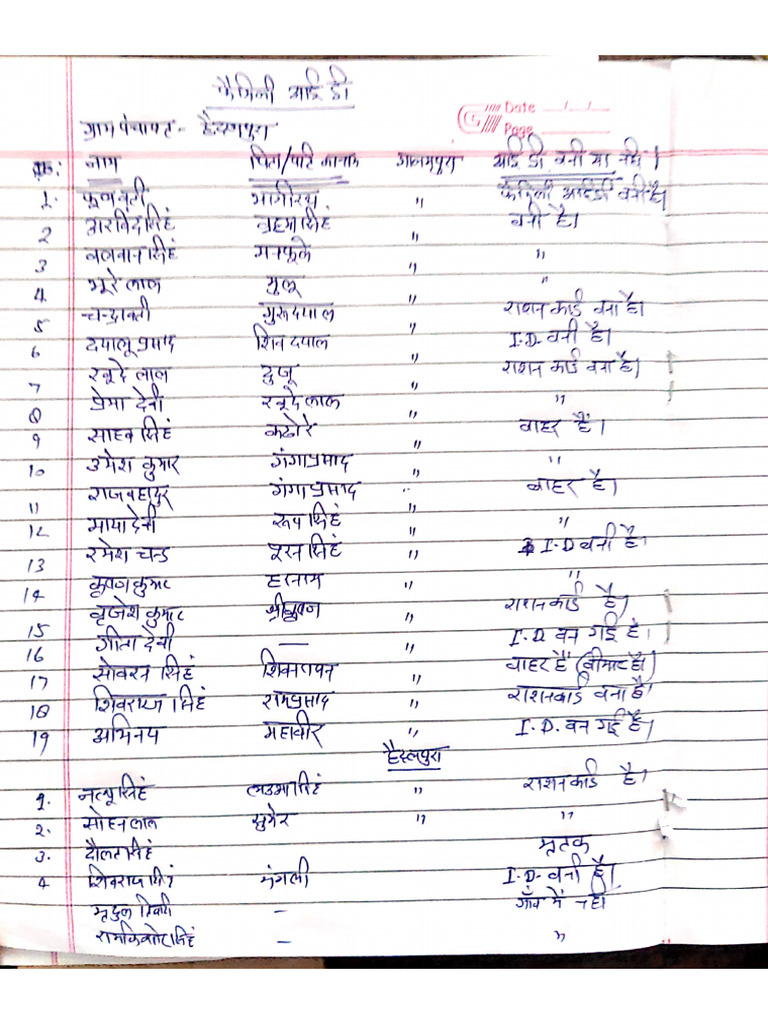 फैमिली आई डी
Date __/__/__
Page ____
ग्राम पंचायत - हैदलपुरा
क्र: नाम पिता/पति का नाम आलमपुरा आई डी बनी या नही।
1. फूलवती भागीरथ " फैमिली आईडी बनी है।
2 अरविंदसिंह ब्रहमासिंह " बनी है।
3 बलवानसिंह मनफूले " "
4. भूरे लाल " "
5 चन्द्रावती गुरुदयाल " राशन कार्ड बना है।
6 दयालू प्रसाद शिव दयाल " I.D- बनी है।
7 लाल " राशन कार्ड बना है।
8 प्रेमा देवी लाल " "
9 साहब सिंह कढोरे " बाहर हैं।
10 उमेश कुमार गंगाप्रसाद " "
11 राजबहादुर गंगाप्रसाद " बाहर है।
12 माया देवी रूप सिंह " "
13 रमेश चन्द्र पूरन सिंह " I-D बनी है।
14 कृष्ण कुमार हरनाम " "
15 बृजेश कुमार " राशनकार्ड है।
16 गीता देवी — " I.D बन गई है।
17 सोबरन सिंह " बाहर है (बीमार है)
18 शिवराज सिंह रामप्रसाद " राशनकार्ड बना है।
19 अभिनय महावीर " I.D. बन गई है।
हैदलपुरा
1. नत्थूसिंह " राशनकार्ड है।
2. सोहनलाल सुमेर " "
3. दौलतसिंह मृतक
4 शिवराज सिंह मंगली I.D- बनी है।
मृदुल तिवारी - गाँव में नही
रामकिशोर सिंह - "